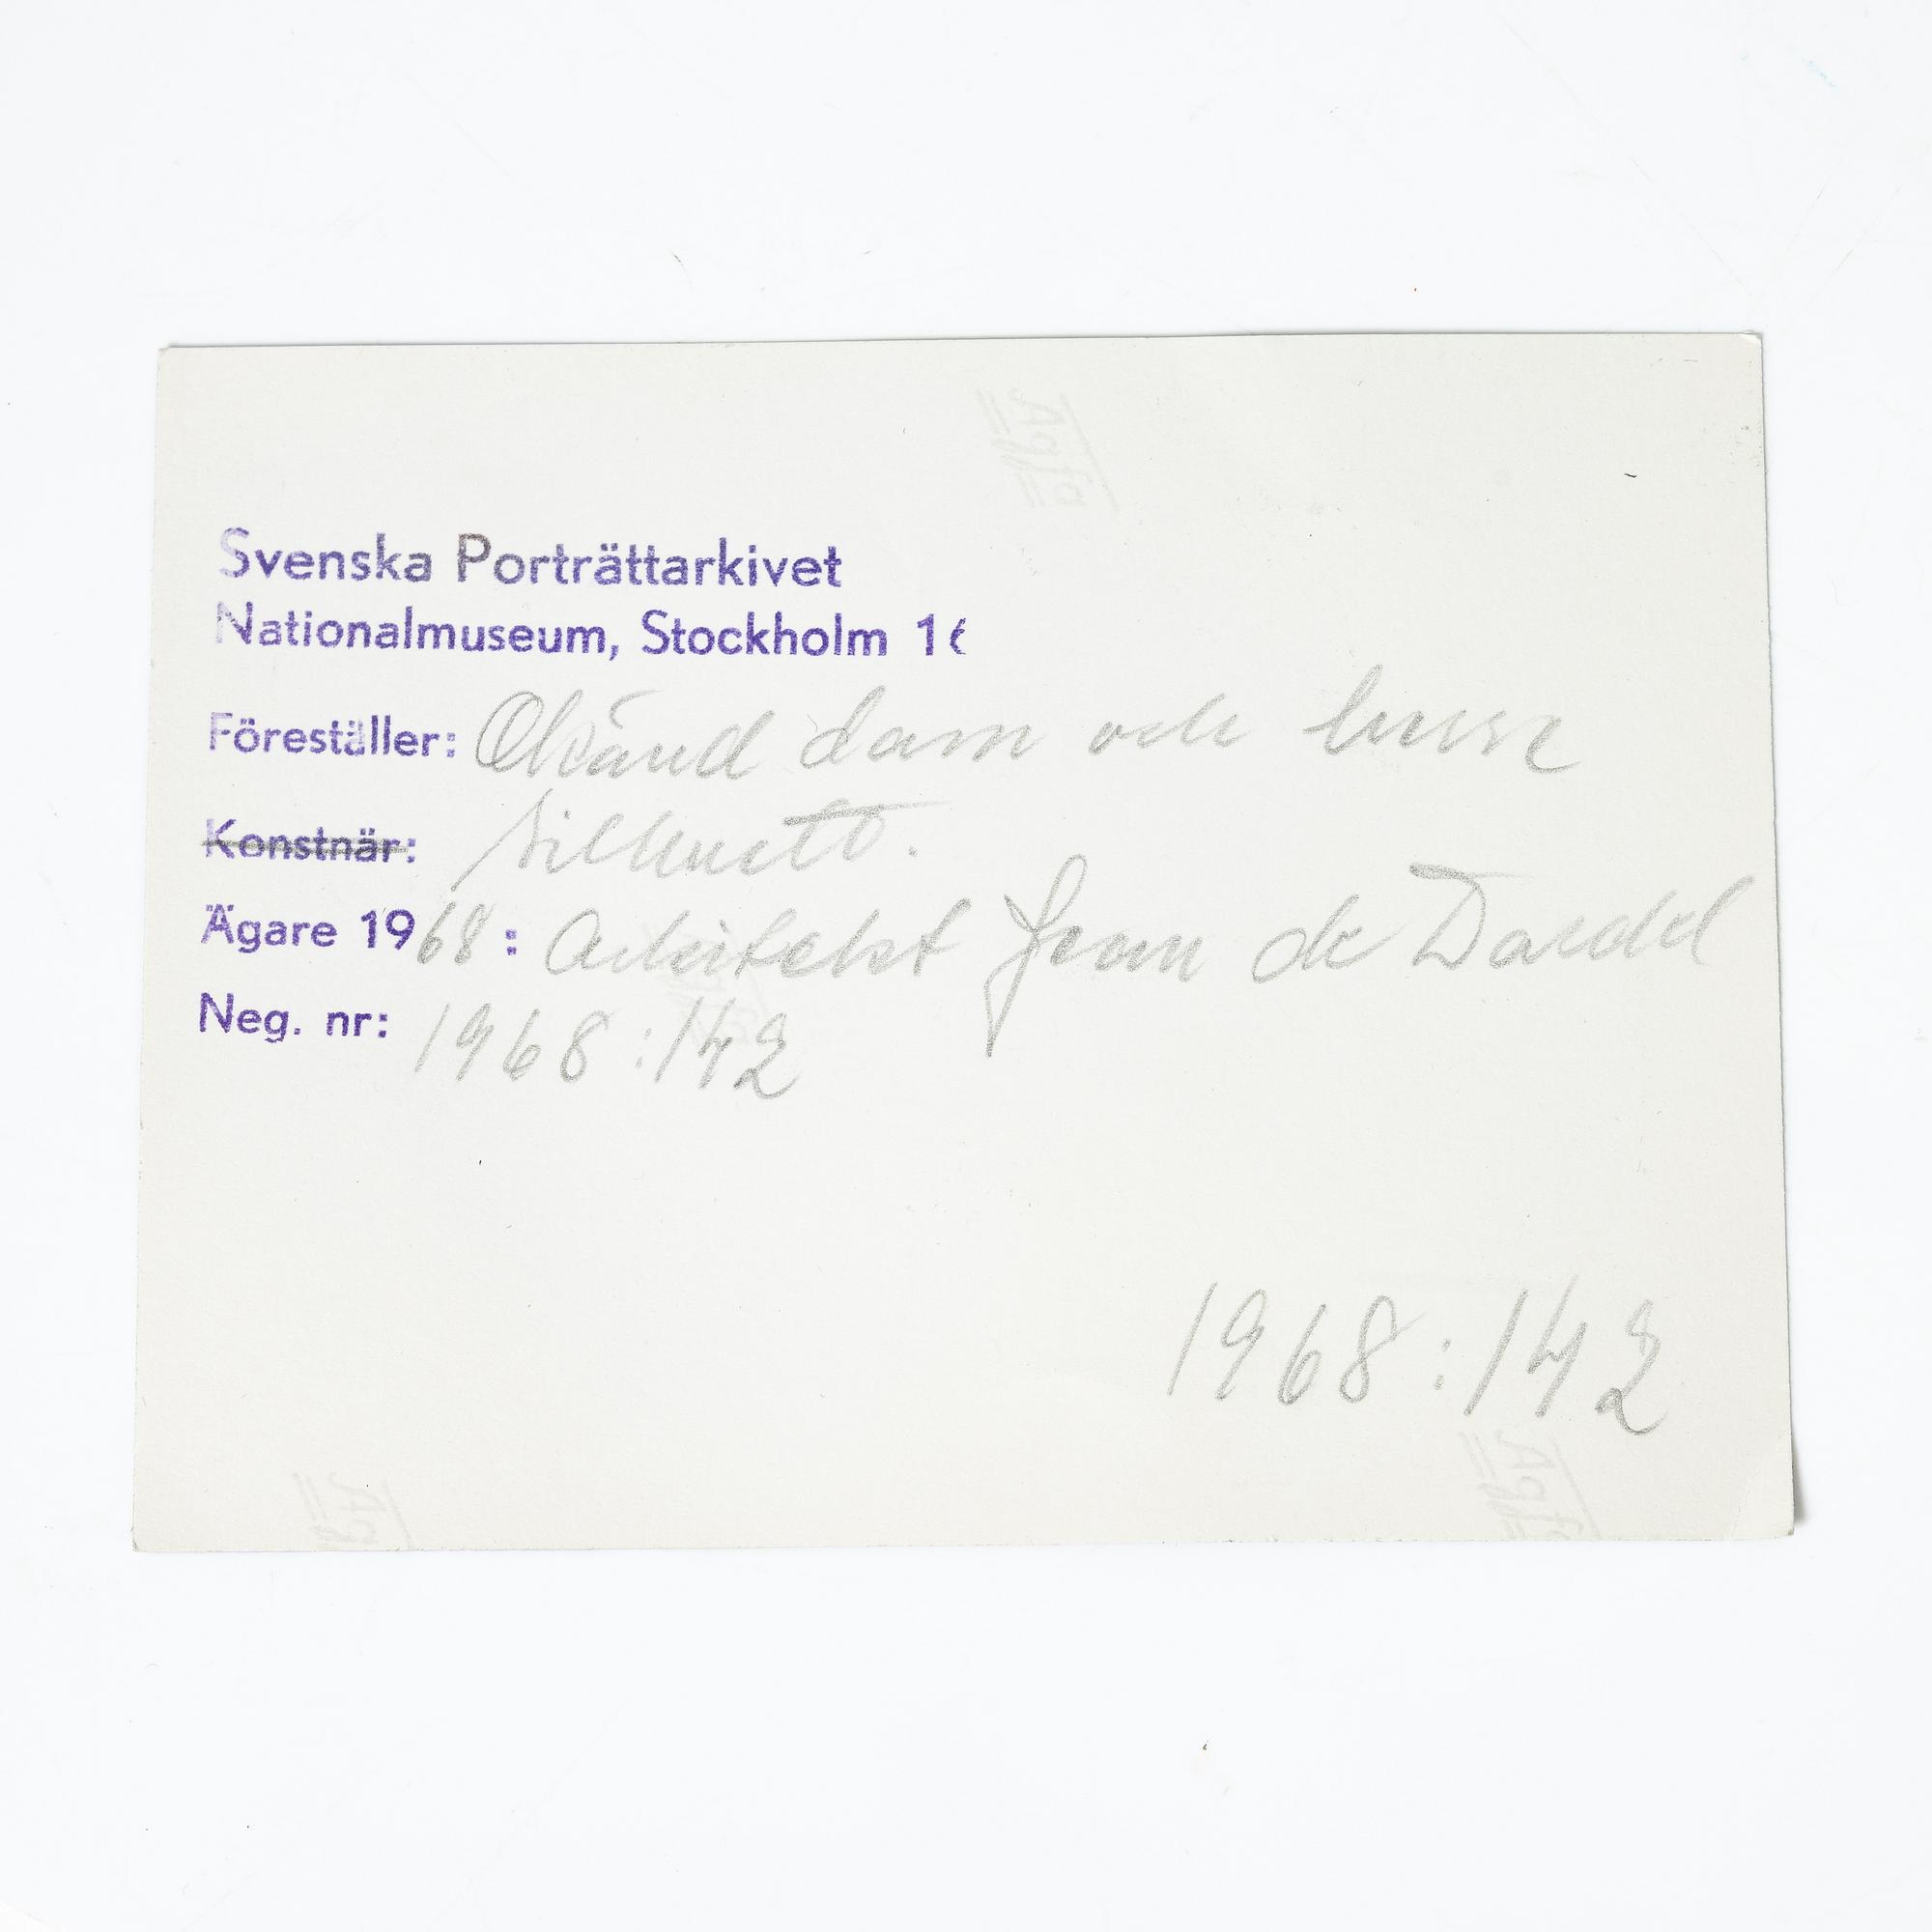 Svenska Porträttarkivet
Nationalmuseum, Stockholm 16
Föreställer: Okänd dam och herre
Konstnär: Silhuett.
Ägare 1968: Arkitekt Jean de Dardel
Neg. nr: 1968:142
1968:142
Agfa
Agfa